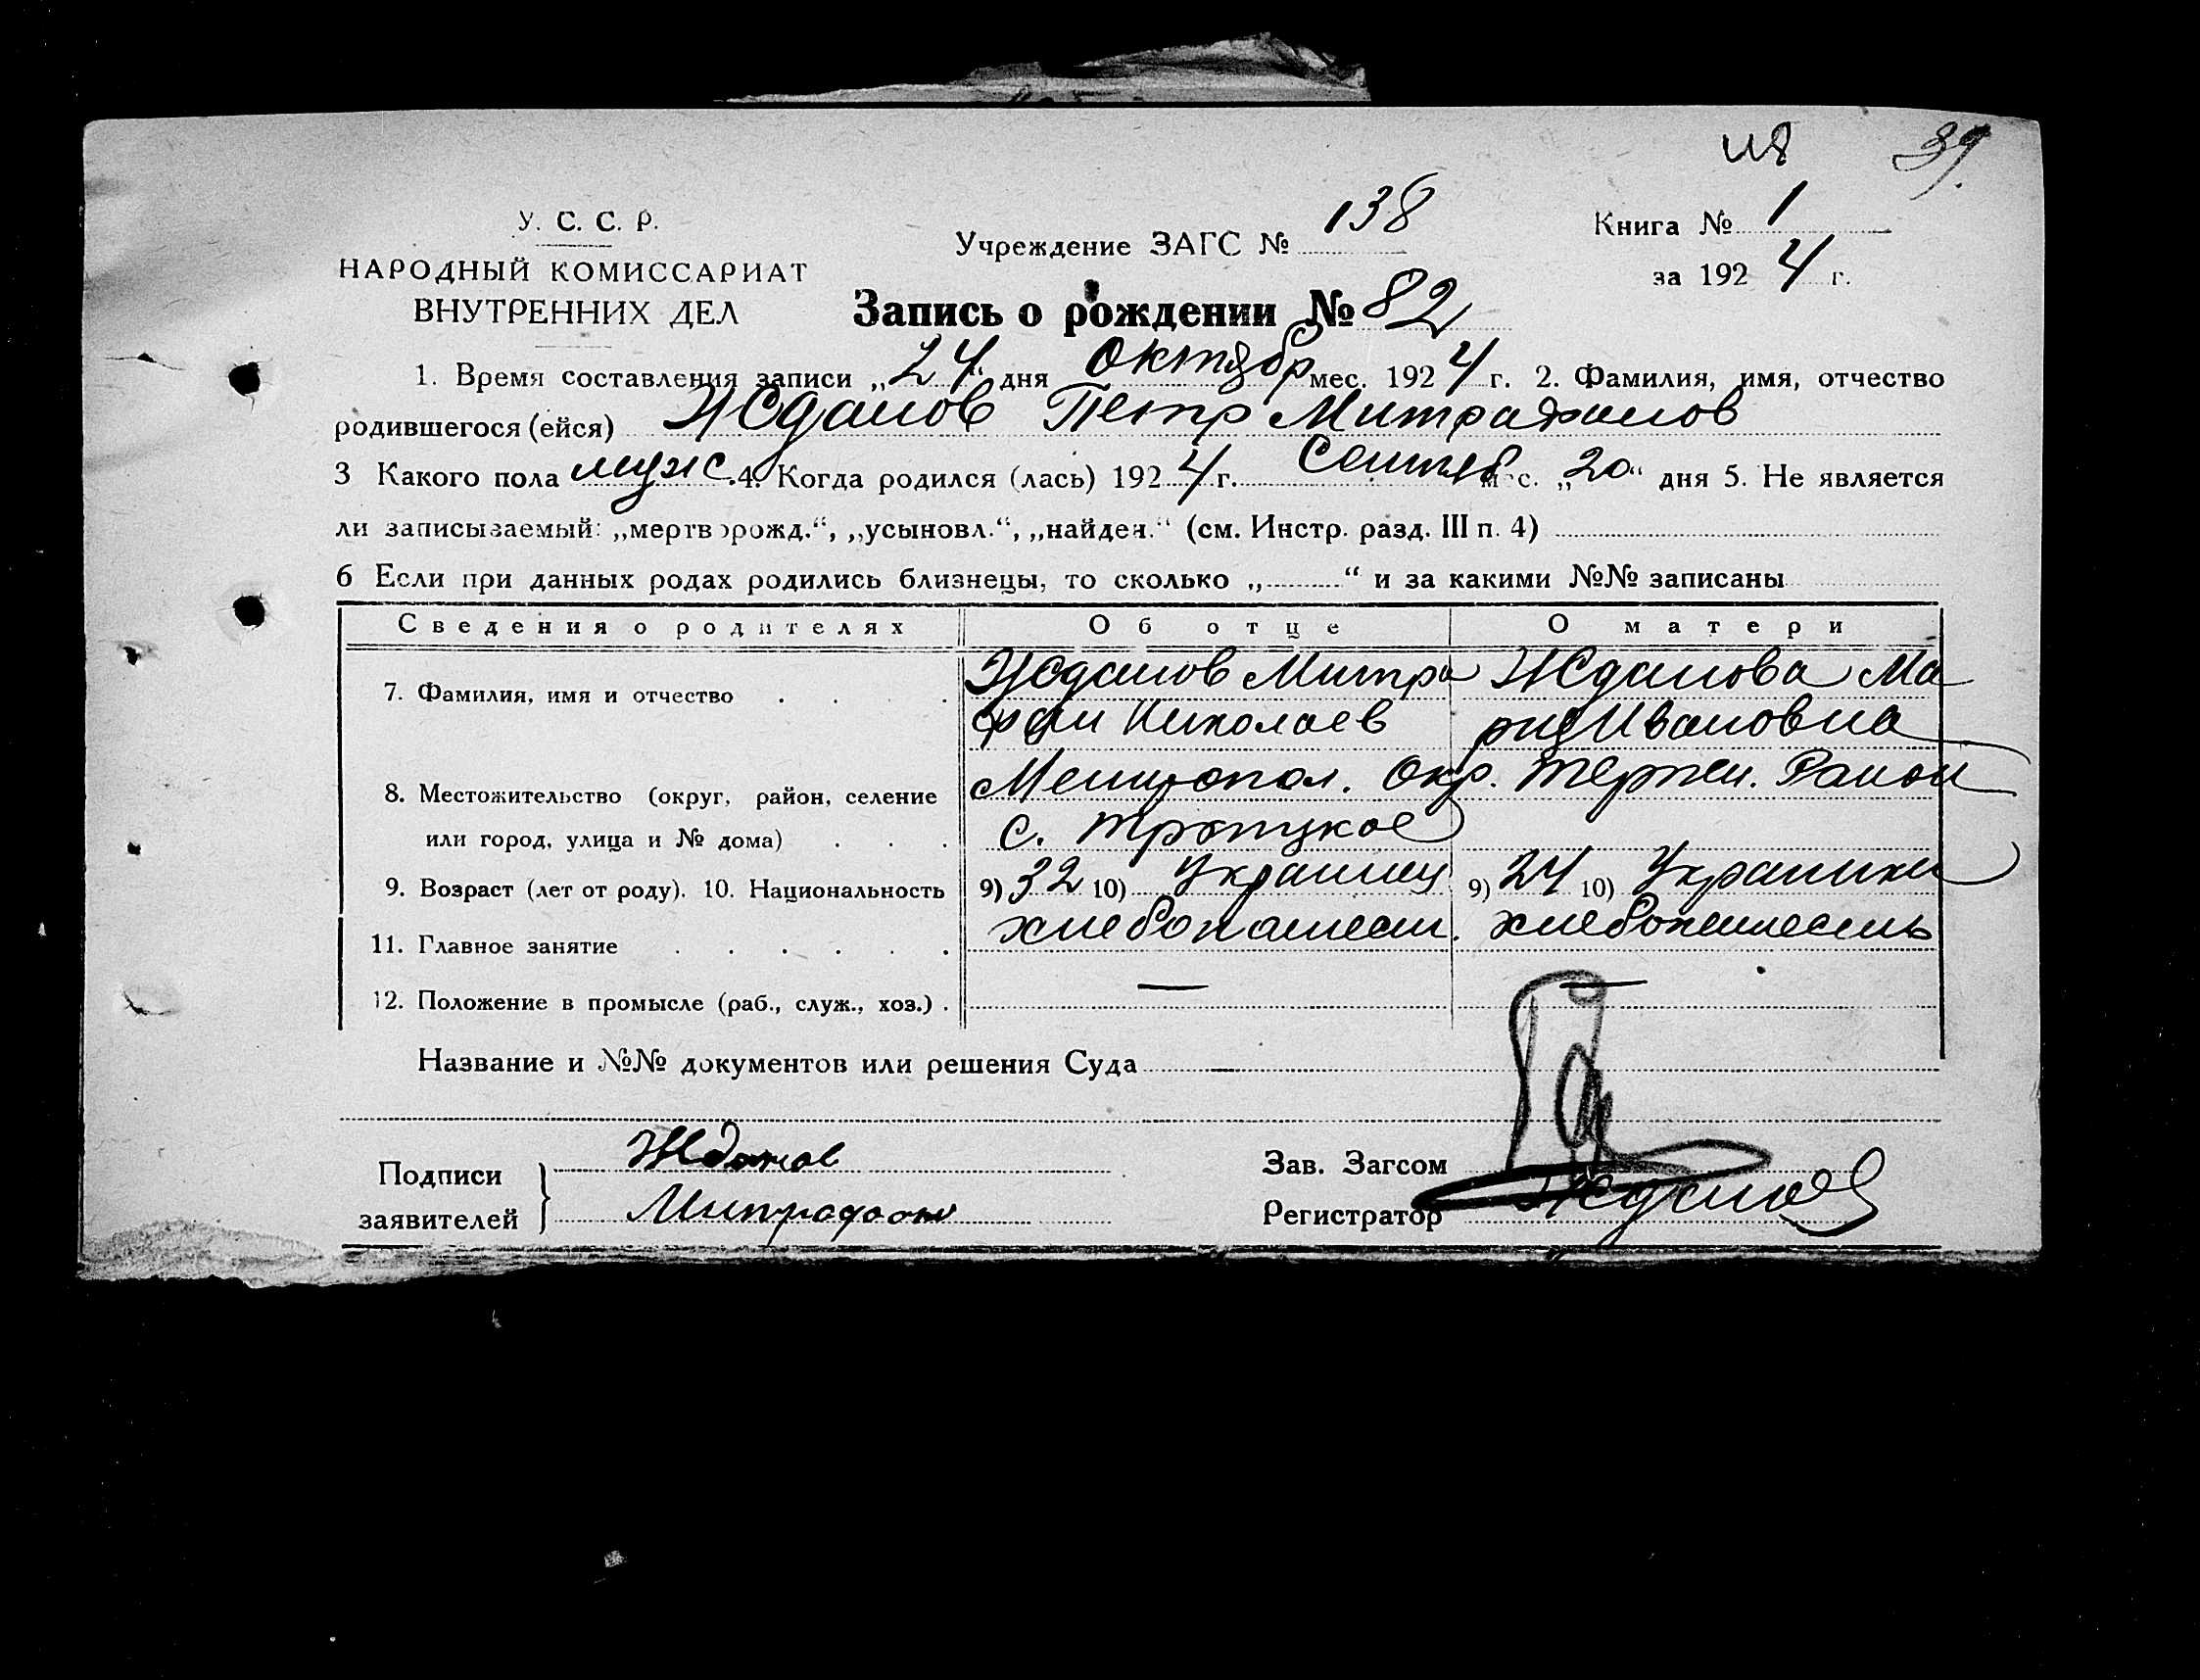 118 39.
У. С. С. Р.
НАРОДНЫЙ КОМИССАРИАТ
ВНУТРЕННИХ ДЕЛ
Учреждение ЗАГС № 138
Книга № 1
за 192 4 г.
Запись о рождении № 82
1. Время составления записи „24“ дня Октябр мес. 192 4 г. 2. Фамилия, имя, отчество
родившегося (ейся) Жданов Петр Митрафанов
3 Какого пола муж. 4. Когда родился (лась) 192 4 г. Сентяб м-с. „20“ дня 5. Не является
ли записываемый: „мертворожд.“, „усыновл.“, „найден.“ (см. Инстр. разд. III п. 4)
6 Если при данных родах родились близнецы, то сколько „ “ и за какими №№ записаны
Сведения о родителях Об отце О матери
7. Фамилия, имя и отчество Жданов Митра Жданова Ма
фан Николаев рия Ивановна
8. Местожительство (округ, район, селение Мелитопол. Окр. Терпен. Район
или город, улица и № дома) с. Троицкое
9. Возраст (лет от роду). 10. Национальность 9) 32 10) Украинец 9) 24 10) Украинка
11. Главное занятие хлебопашест. хлебопашесть
12. Положение в промысле (раб., служ., хоз.) . — —
Название и №№ документов или решения Суда —
Подписи заявителей } Жданов
Митрофан
Зав. Загсом
Регистратор Жданов